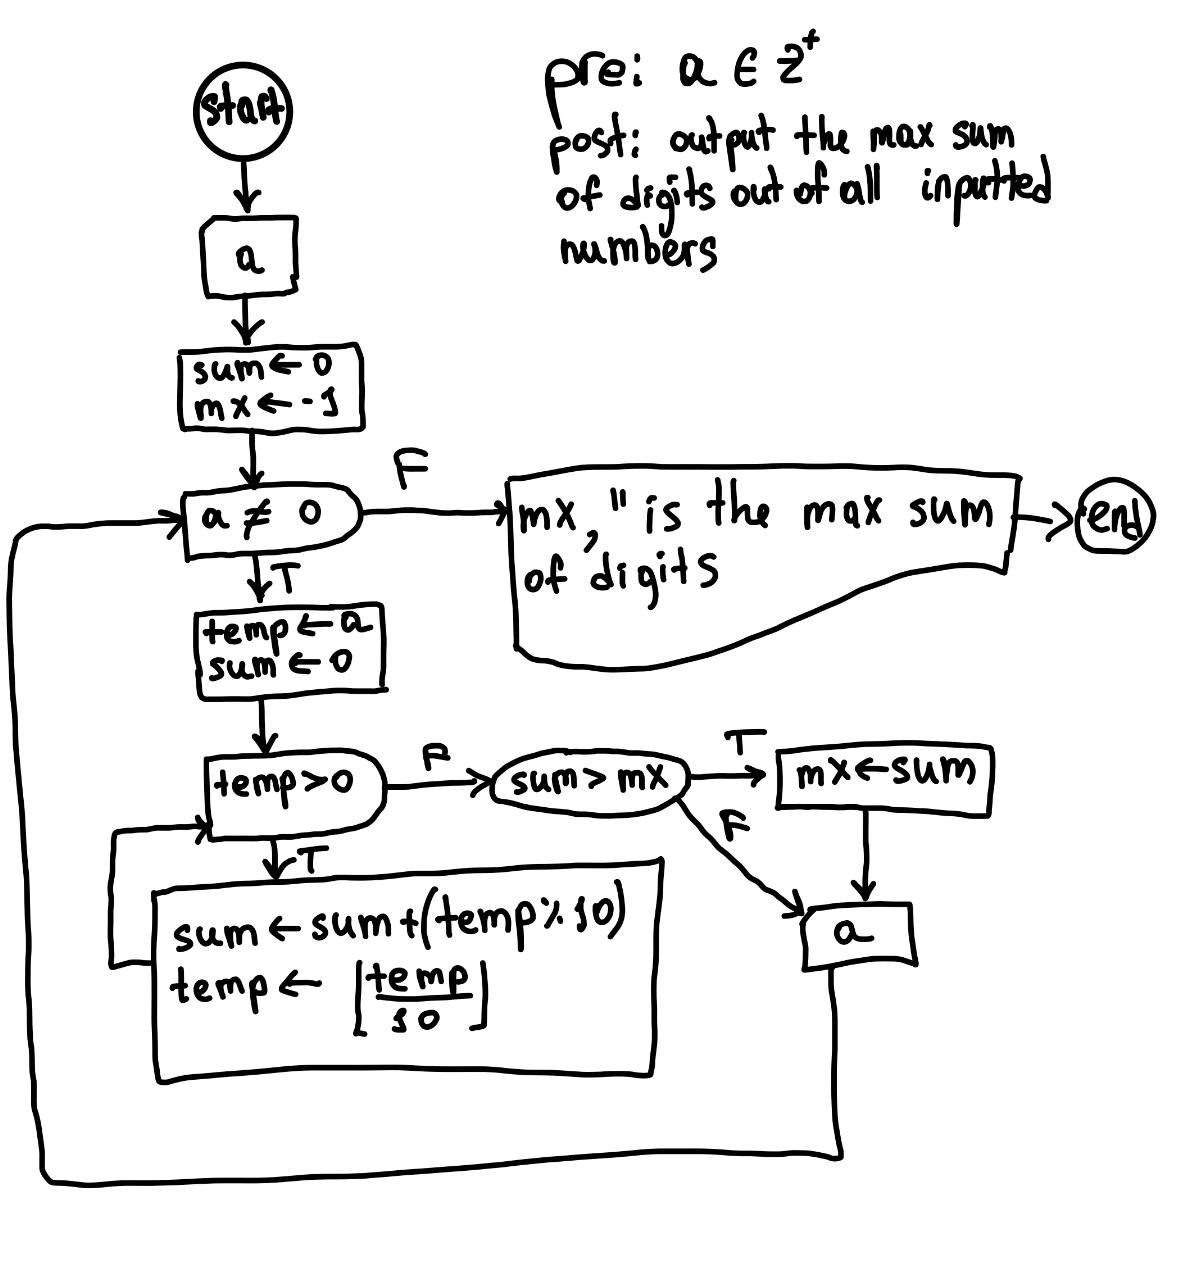 pre: a ∈ Z⁺
post: output the max sum
of digits out of all inputted
numbers
start
a
sum ← 0
mx ← -1
a ≠ 0
F
mx, " is the max sum
of digits
end
T
temp ← a
sum ← 0
temp > 0
F
sum > mx
T
mx ← sum
F
T
a
sum ← sum + (temp % 10)
temp ← ⌊temp/10⌋